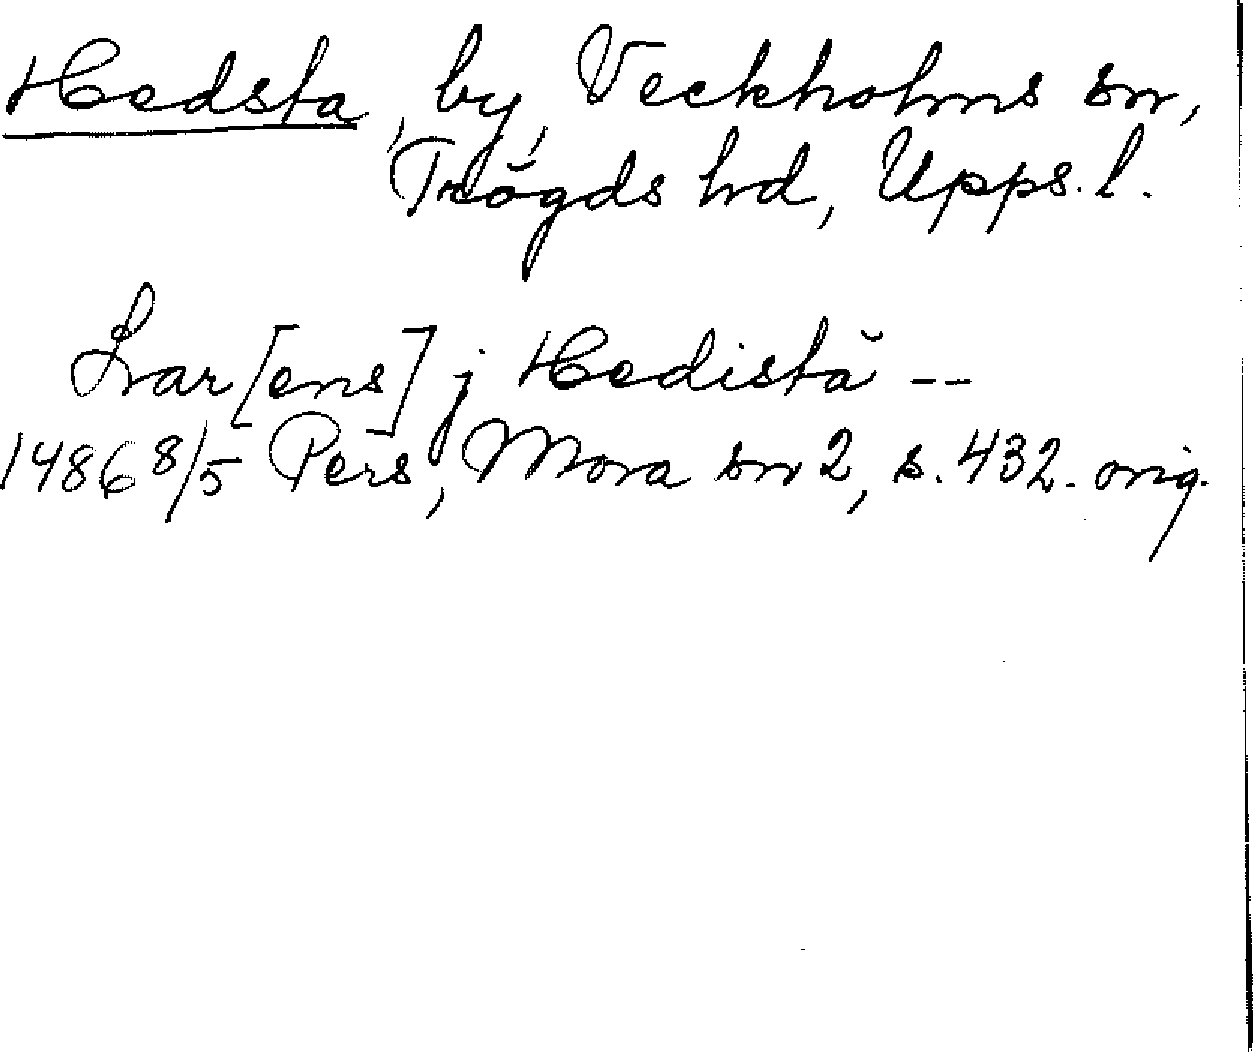 Hedsta, by, Veckholms sn,
Trögds hd, Upps. l.
Ivar [ens] j Hedistä --
1486 8/5 Pers, Mora sn 2, s. 432. orig.